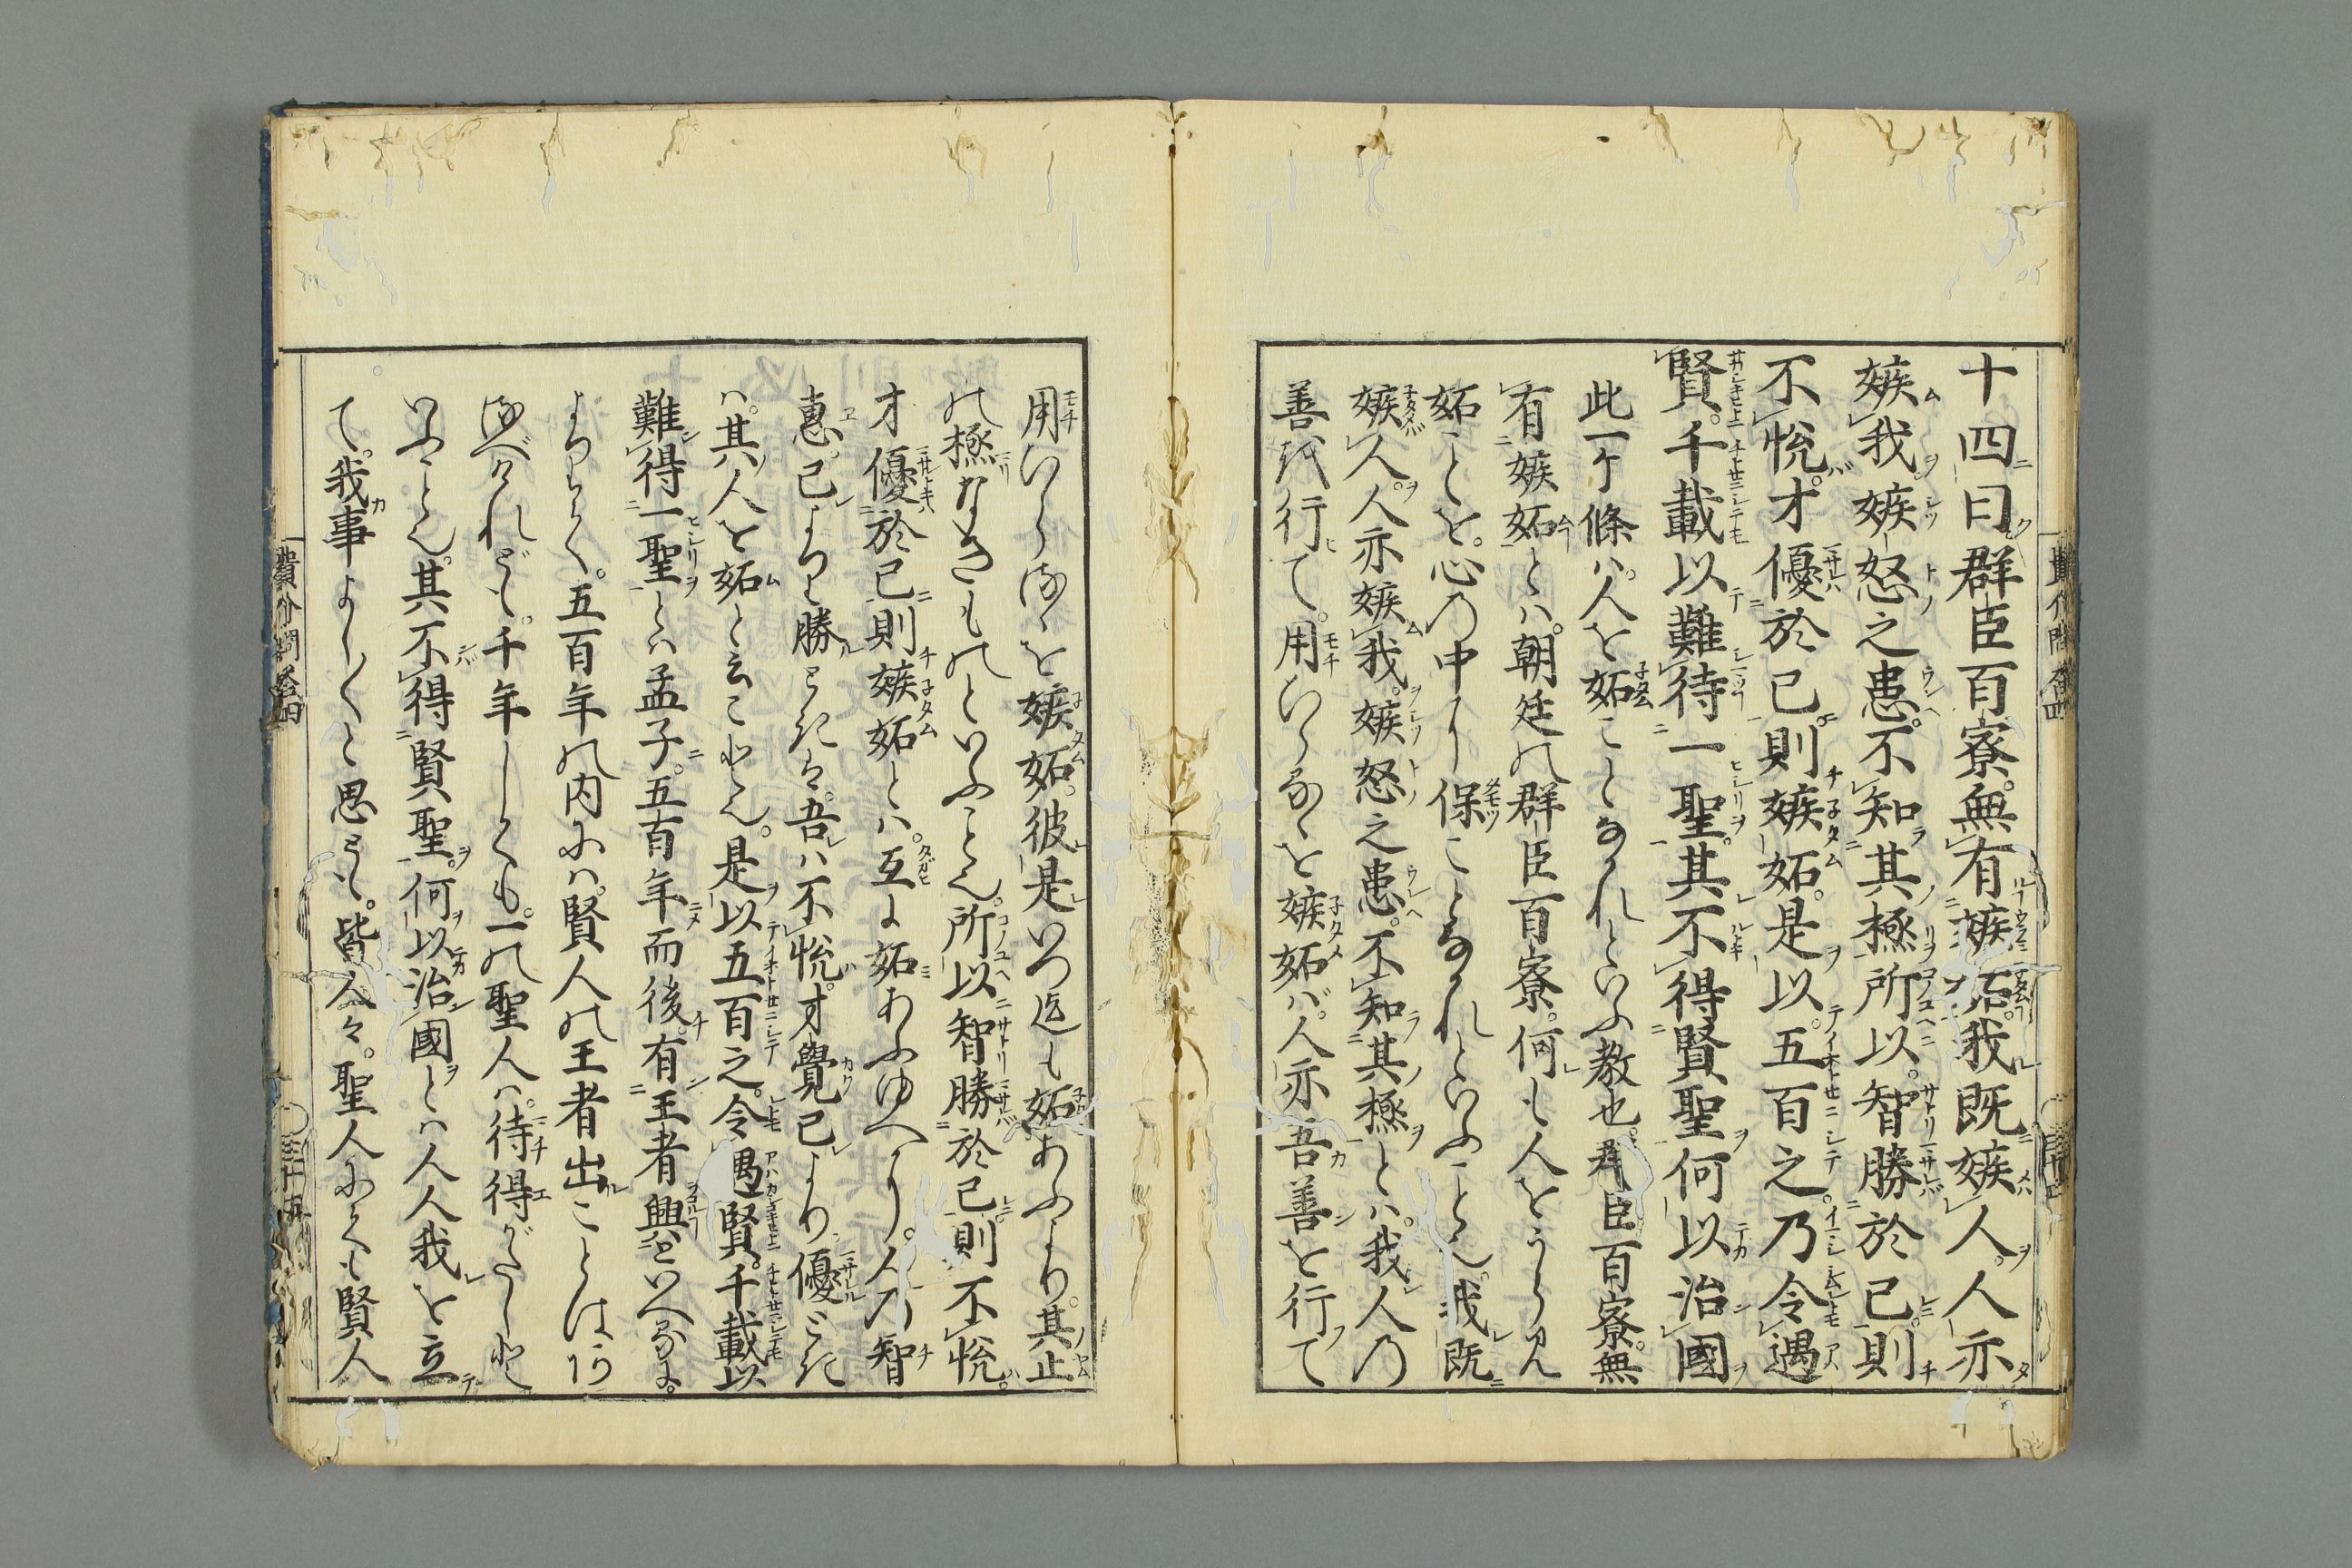 十四曰群臣百寮。無有嫉妬。我既嫉人。人亦
嫉我嫉怒之患。不知其極所以。智勝於己。則
不悦。才優於己則嫉妬。是以。五百之。乃令遇
賢。千載以難待一聖。其不得賢聖何以治國
此一ケ條ハ。人を妬ことなかれといふ教也。群臣百寮。無
有嫉妬とハ。朝廷の群臣百寮。何も人をうらみ
妬ことを。心の中に保ことなかれといふこと也。我既
嫉人。人亦嫉我。嫉怒之患。不知其極とハ。我人の
善を行て。用いらるゝを嫉妬バ。人亦吾善を行て
用いらるゝを嫉妬。彼是いつ迄も妬あふより。其止
の極なきものといふこと也。所以智勝於己則不悦。
才優於己則嫉妬とハ。互に妬あふゆへより。人の智
惠。己よりも勝るときは。吾ハ不悦。才覺己より優ときハ
ハ。其人を妬と云こと也。是以五百之。令遇賢。千載以
難得一聖とハ孟子。五百年而後。有王者興といへるは。
よのつねにて。五百年の内にハ。賢人の王者出ことはあり
ぬべけれども。千年しても。一の聖人ハ。待得がたしと
いふこと也。其不得賢聖。何以治國とハ人人我を立
て。我事よし〱と思ふとも。皆人々。聖人にても賢人